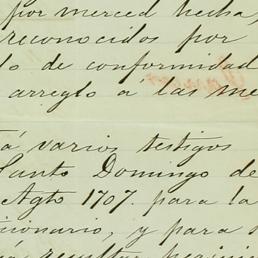 por merced hecha,
reconocidos por
lo de conformidad
arreglo á las me
á varios testigos
Santo Domingo de
Agto 1707. para la
cionario, y para